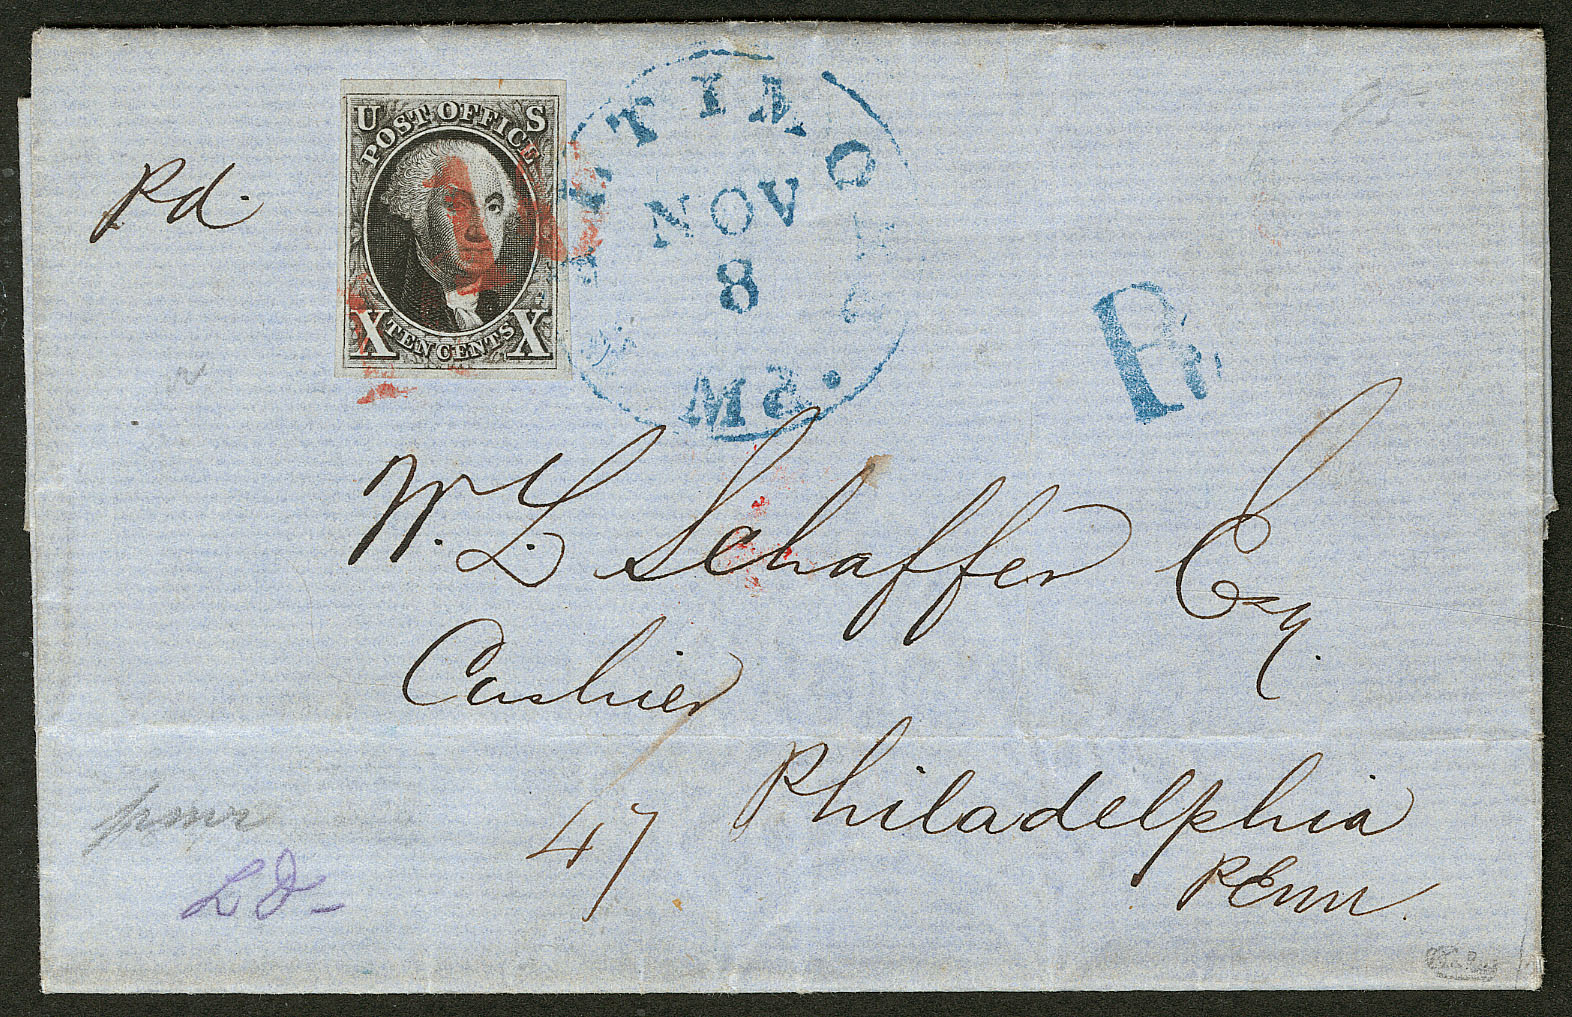 U S
POST OFFICE
X TEN CENTS X
TIMO
NOV
8
Md.
Pd.
W. L. Schaffer Esq.
Cashier
Philadelphia
Penn
47